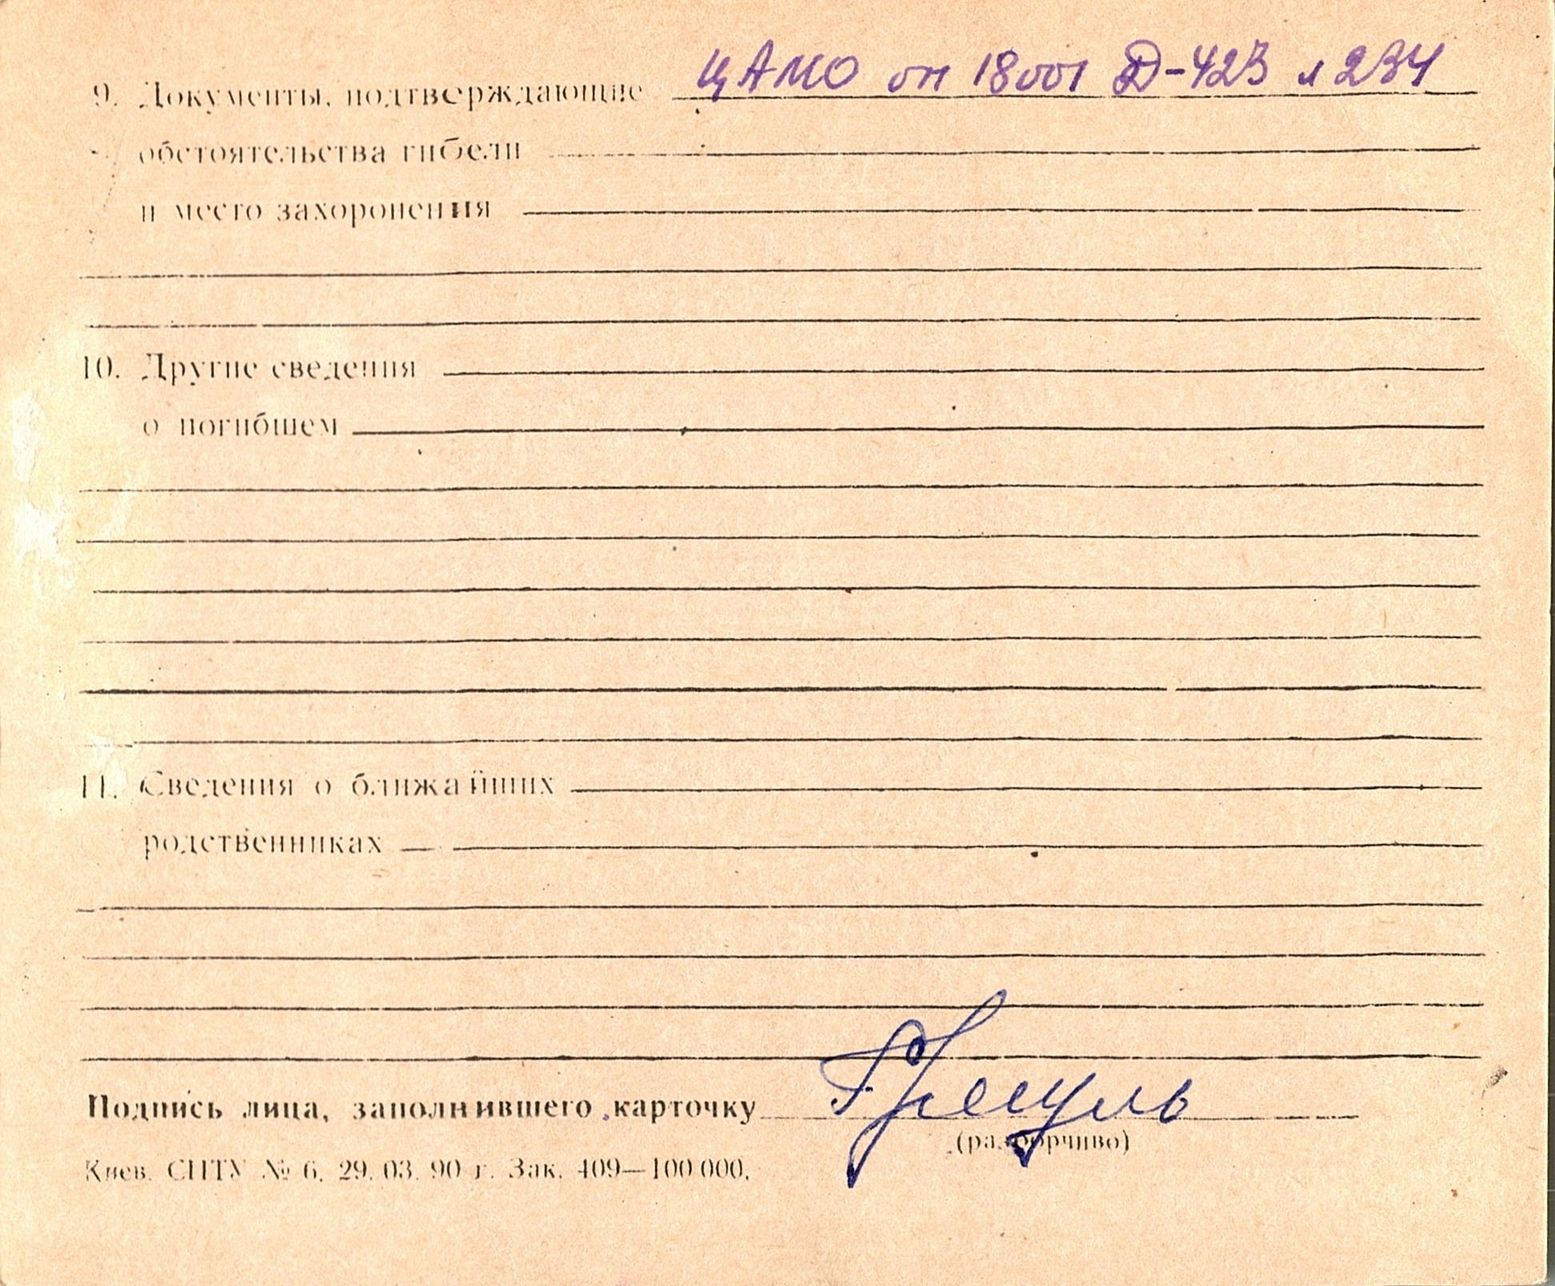 9. Документы, подтверждающие ЦАМО оп 18001 Д-423 л 234
обстоятельства гибели
и место захоронения
10. Другие сведения
о погибшем
11. Сведения о ближайших
родственниках
Подпись лица, заполнившего карточку
(разборчиво)
Киев. СПТУ № 6. 29. 03. 90 г. Зак. 409—100 000.